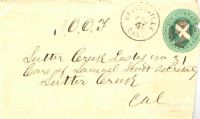 I.O.O.F
Sutter Creek Lodge no 31
Care of Samuel Scott Secretary
Sutter Creek
Cal